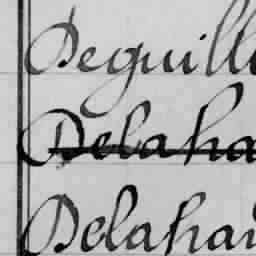 Deguill
Delaha
Delahai